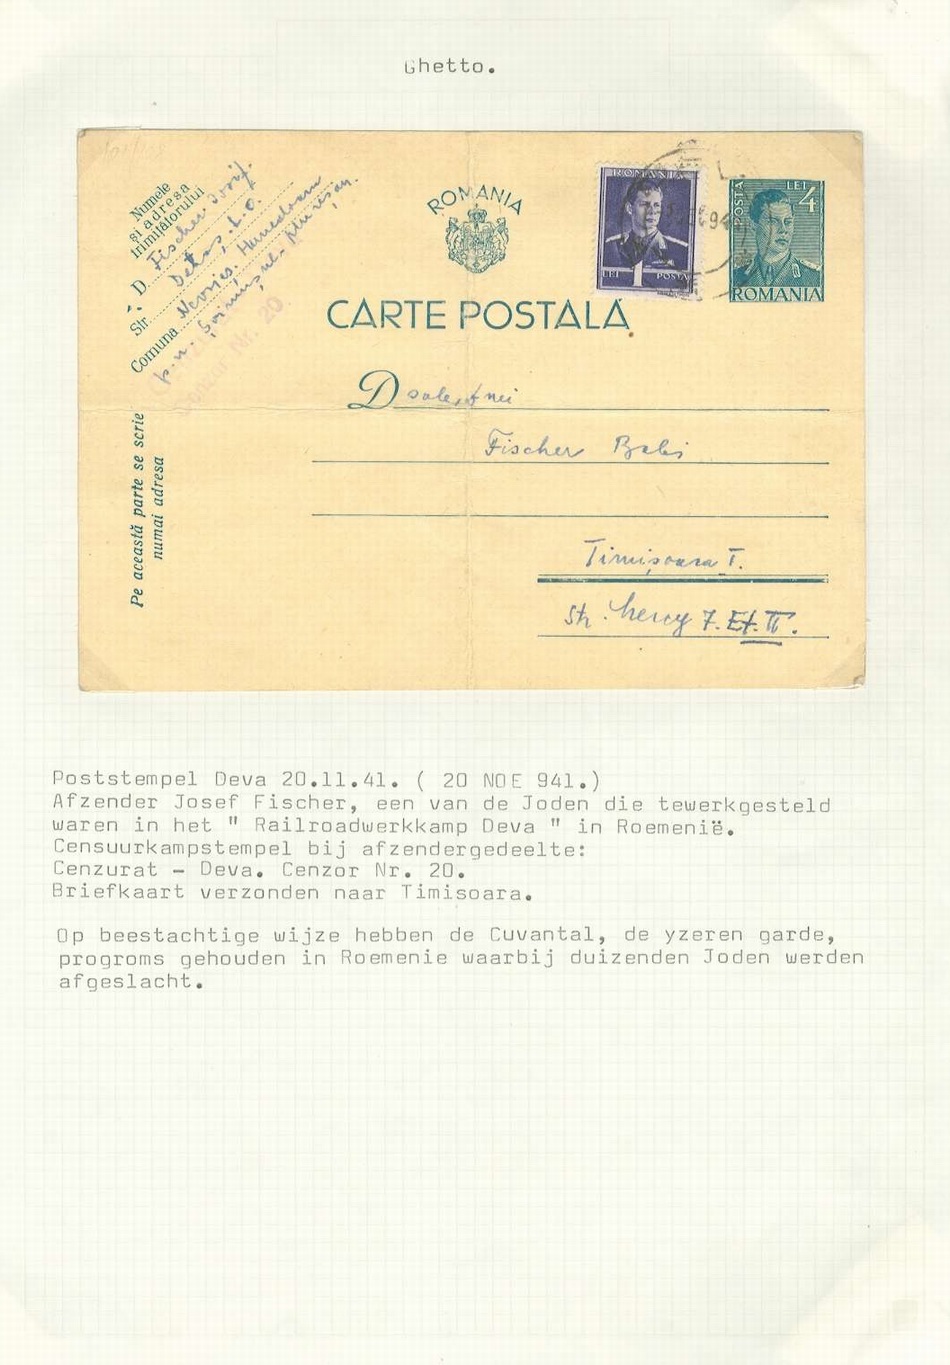 Ghetto.
Numele
și adresa
trimițătorului
D. Fischer Iosif.
Detaș. L.O.
Str.
Comuna
Cenzor Nr. 20
Pe această parte se scrie
numai adresa
ROMANIA
CARTE POSTALA
ROMANIA
LEI 1 POSTA
941
POSTA LEI 4
ROMANIA
D
Fischer Bebi
Timișoara I.
Str. Mercy 7. Et. II.
Poststempel Deva 20.11.41. ( 20 NOE 941.)
Afzender Josef Fischer, een van de Joden die tewerkgesteld
waren in het " Railroadwerkkamp Deva " in Roemenië.
Censuurkampstempel bij afzendergedeelte:
Cenzurat - Deva. Cenzor Nr. 20.
Briefkaart verzonden naar Timisoara.
Op beestachtige wijze hebben de Cuvantal, de yzeren garde,
progroms gehouden in Roemenie waarbij duizenden Joden werden
afgeslacht.